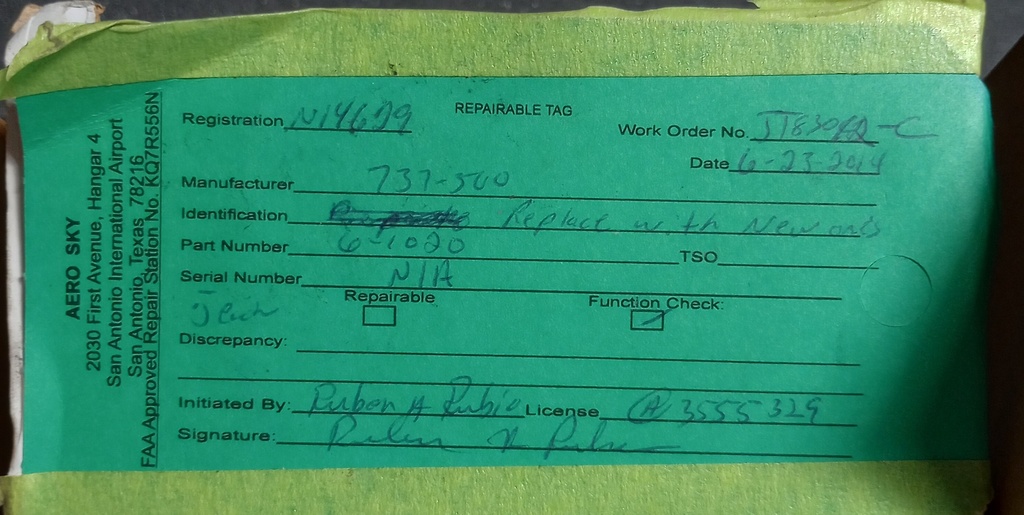 AERO SKY
2030 First Avenue, Hangar 4
San Antonio International Airport
San Antonio, Texas 78216
FAA Approved Repair Station No. KQ7R556N
REPAIRABLE TAG
Registration N14629
Work Order No.
Date 6-23-2014
Manufacturer 737-500
Identification Replace with New ones
Part Number 6-1020 TSO
Serial Number N/A
Repairable Function Check:
Discrepancy:
Initiated By: Ruben A Rubio License 3555329
Signature: